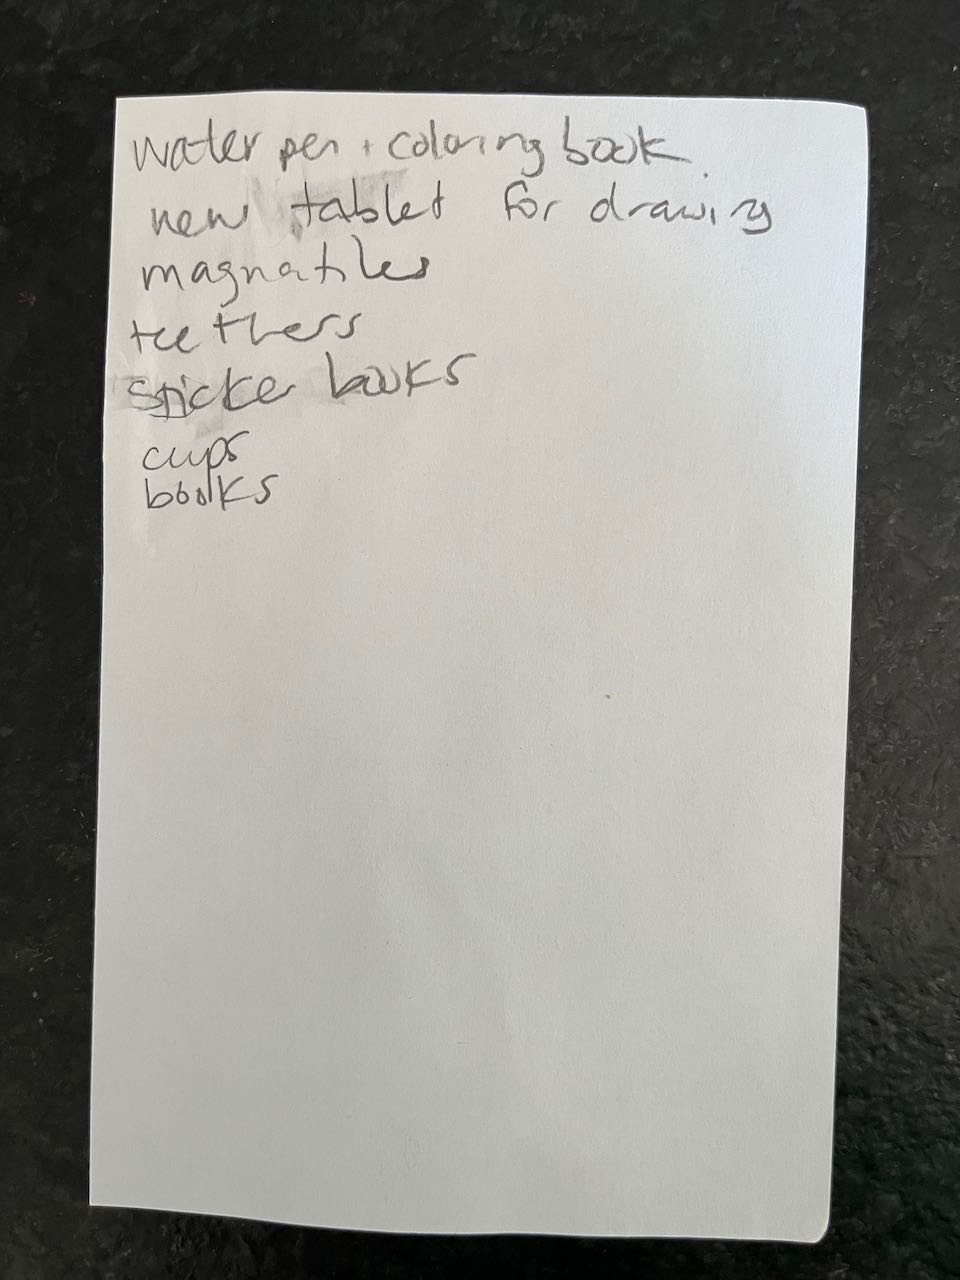 water pen + coloring book
new tablet for drawing
magnatiles
teethers
sticker books
cups
books